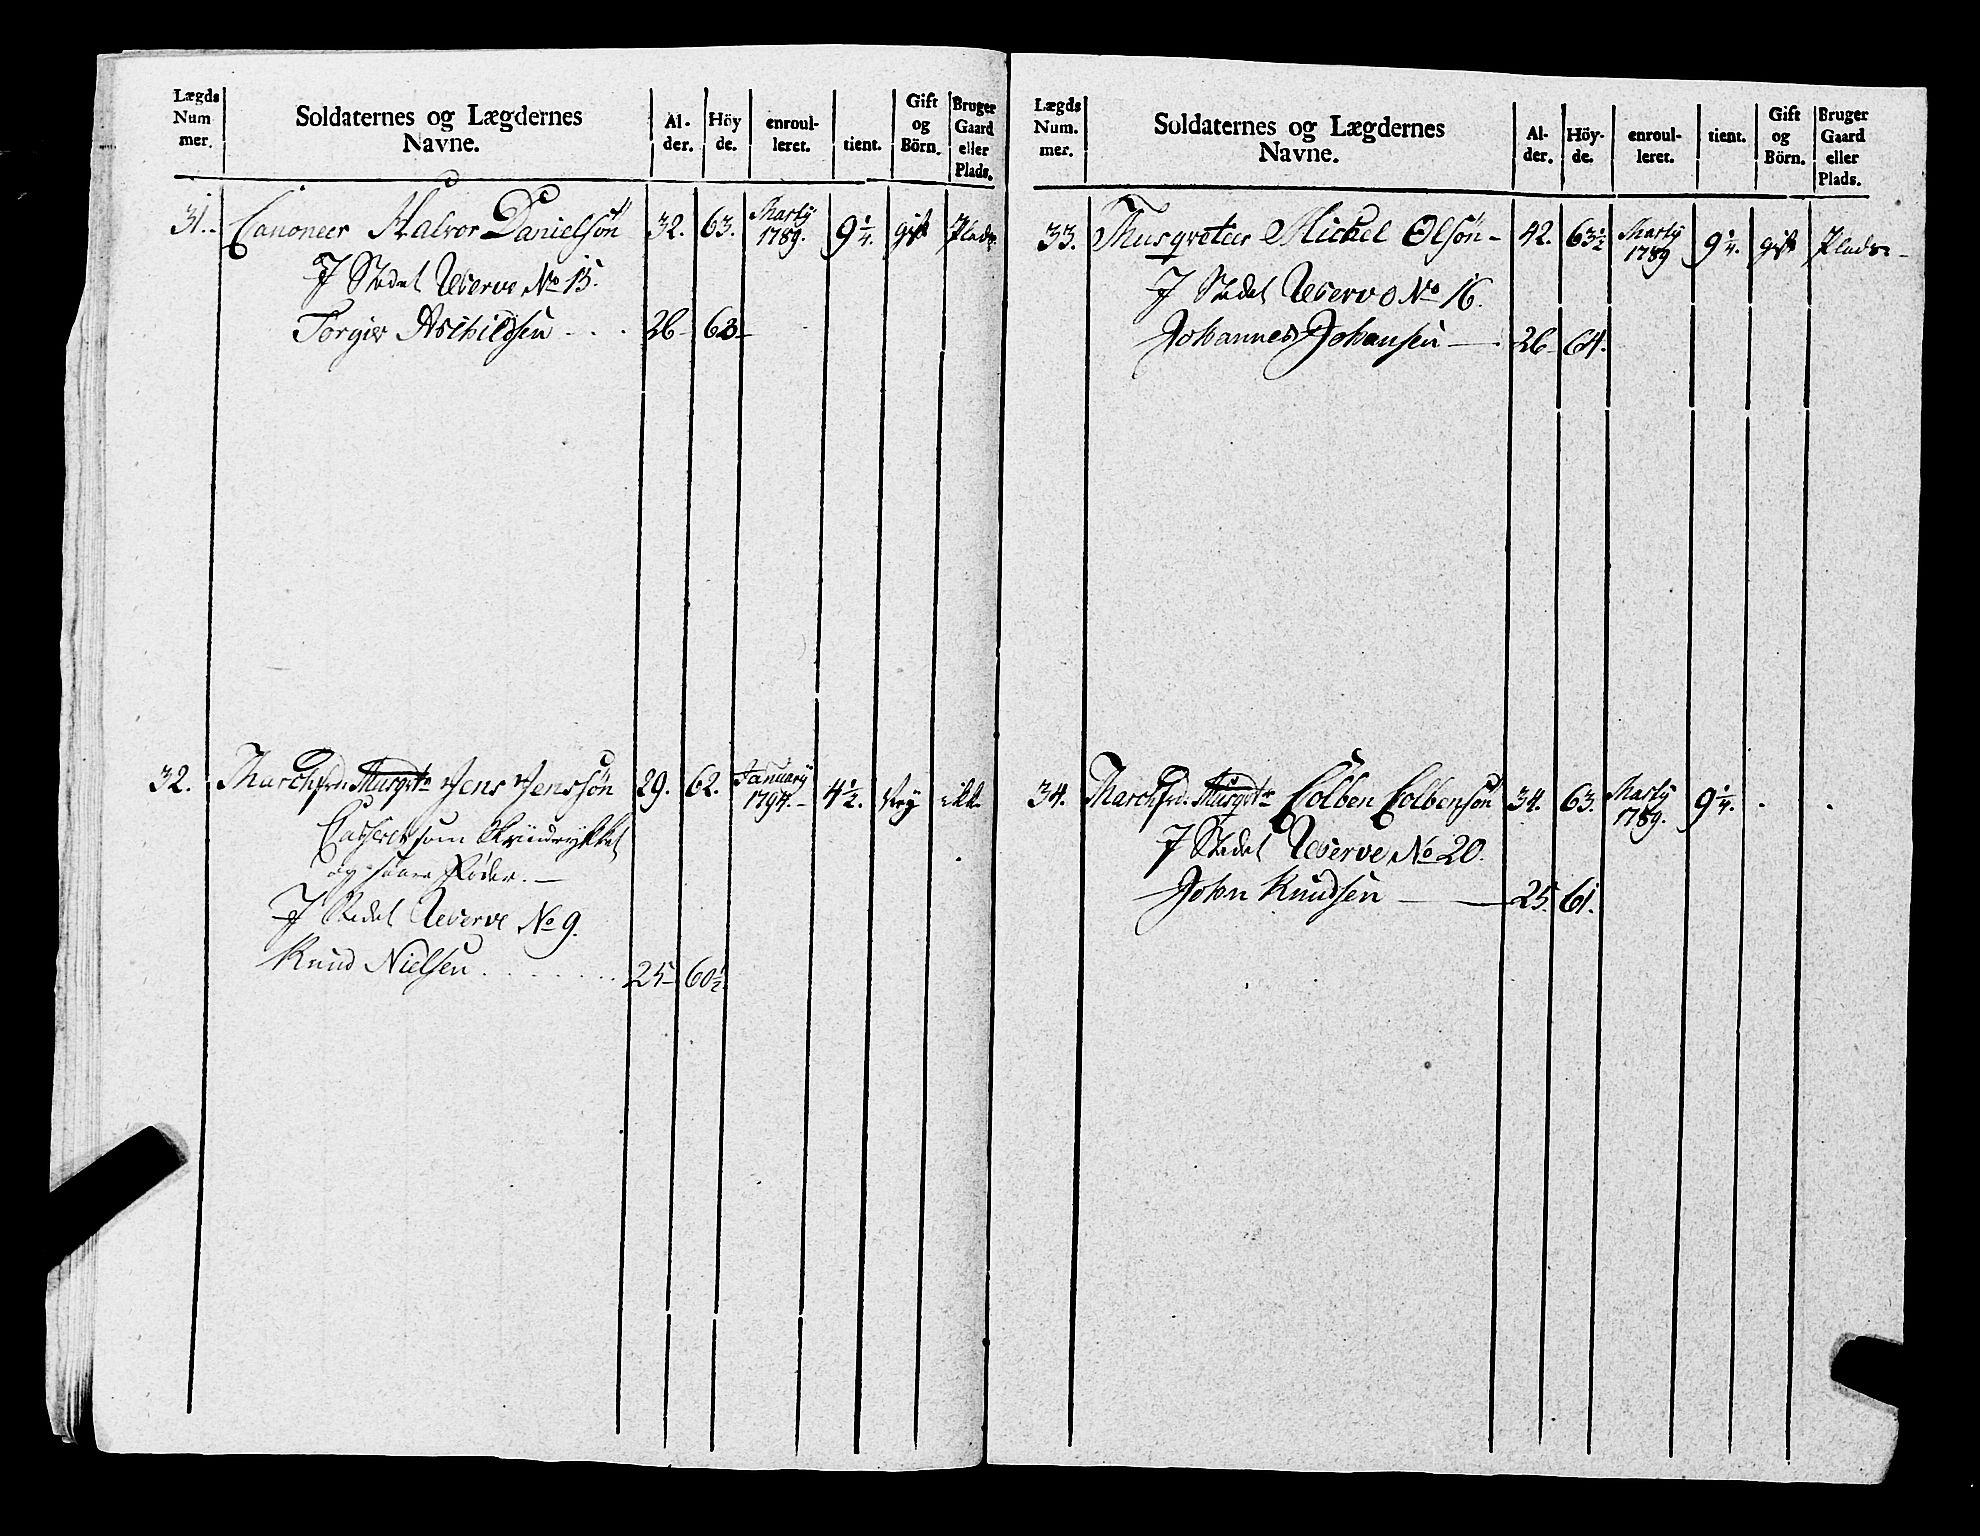 Lægds Num mer. | Soldaternes og Lægdernes Navne. | Al- der. | Höy de. | enroul- leret. | tient. | Gift og Börn. | Bruger Gaard eller Plads.
31. Canoneer Halvor Danielsön 32. 63. Marty 1789. 9 1/4. gift Plads.
I Stedet Reserve No 15.
Torgier Aschildsen 26 63
32. Marchfrd. Musqvtr Jens Jenssön 29. 62. January 1794. 4 1/2. Ney ikke
Casseret som
og Føder.
I Stedet Reserve No 9.
Knud Nielsen 25 60 1/2.
Lægds Num. mer. | Soldaternes og Lægdernes Navne. | Al- der. | Höy- de. | enroul- leret. | tient. | Gift og Börn. | Bruger Gaard eller Plads.
33. Musqveteer Michel Olsön 42. 63 1/2 Marty 1789 9 1/4. gift Plads
I Stedet Reserve No 16.
Johannes Johansen 26 64.
34. Marchfrd. Musqvtr Colben Colbensön 34. 63. Marty 1789. 9 1/4.
I Stedet Reserve No 20.
John Knudsen 25. 61.